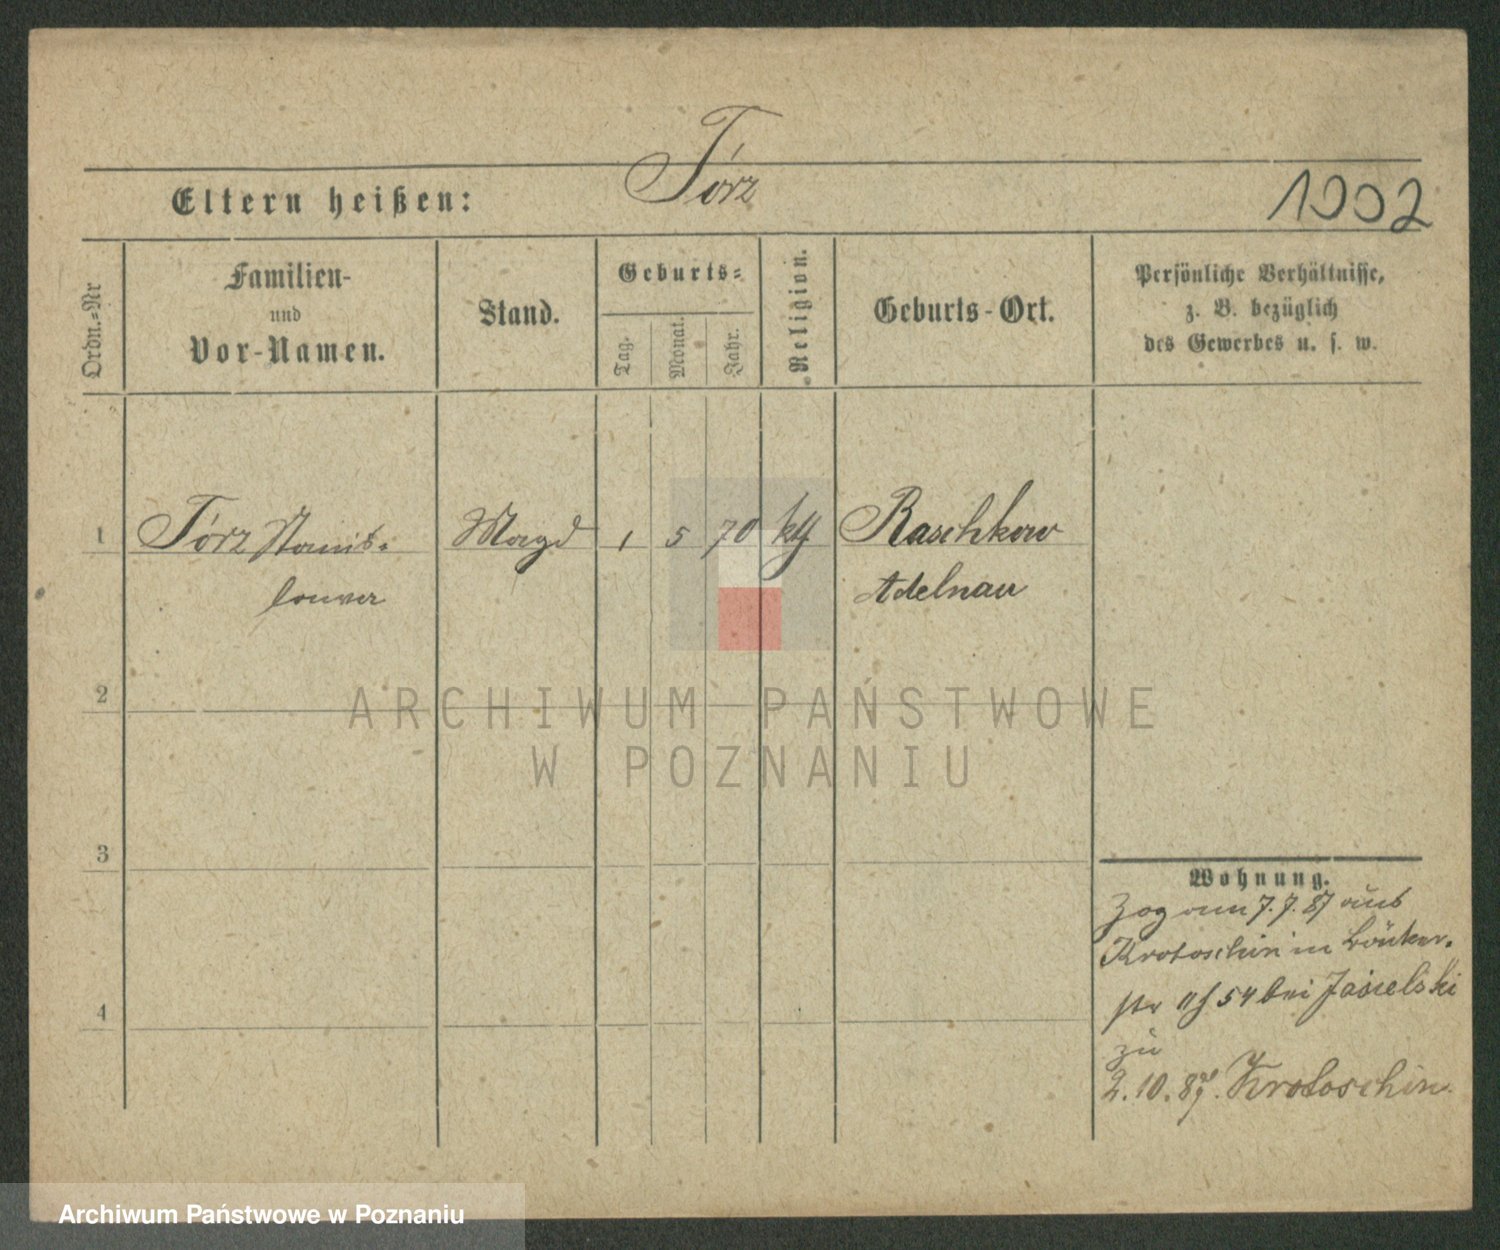 Tórz
Eltern heißen:
1002
Ordn.-Nr
Familien-
und
Vor-Namen.
Stand.
Geburts-
Tag.
Monat.
Jahr.
Religion.
Geburts-Ort.
Persönliche Verhältnisse,
z. B. bezüglich
des Gewerbes u. s. w.
1 Tórz Stanis- Magd 1 5 70 kth Raschkow
Adelnau
2
ARCHIWUM PAŃSTWOWE
W POZNANIU
3
Wohnung.
Zog am 7.7.87 aus
Krotoschin in
str 54 bei Jasielski
4
zu
2.10.87. Krotoschin
Archiwum Państwowe w Poznaniu